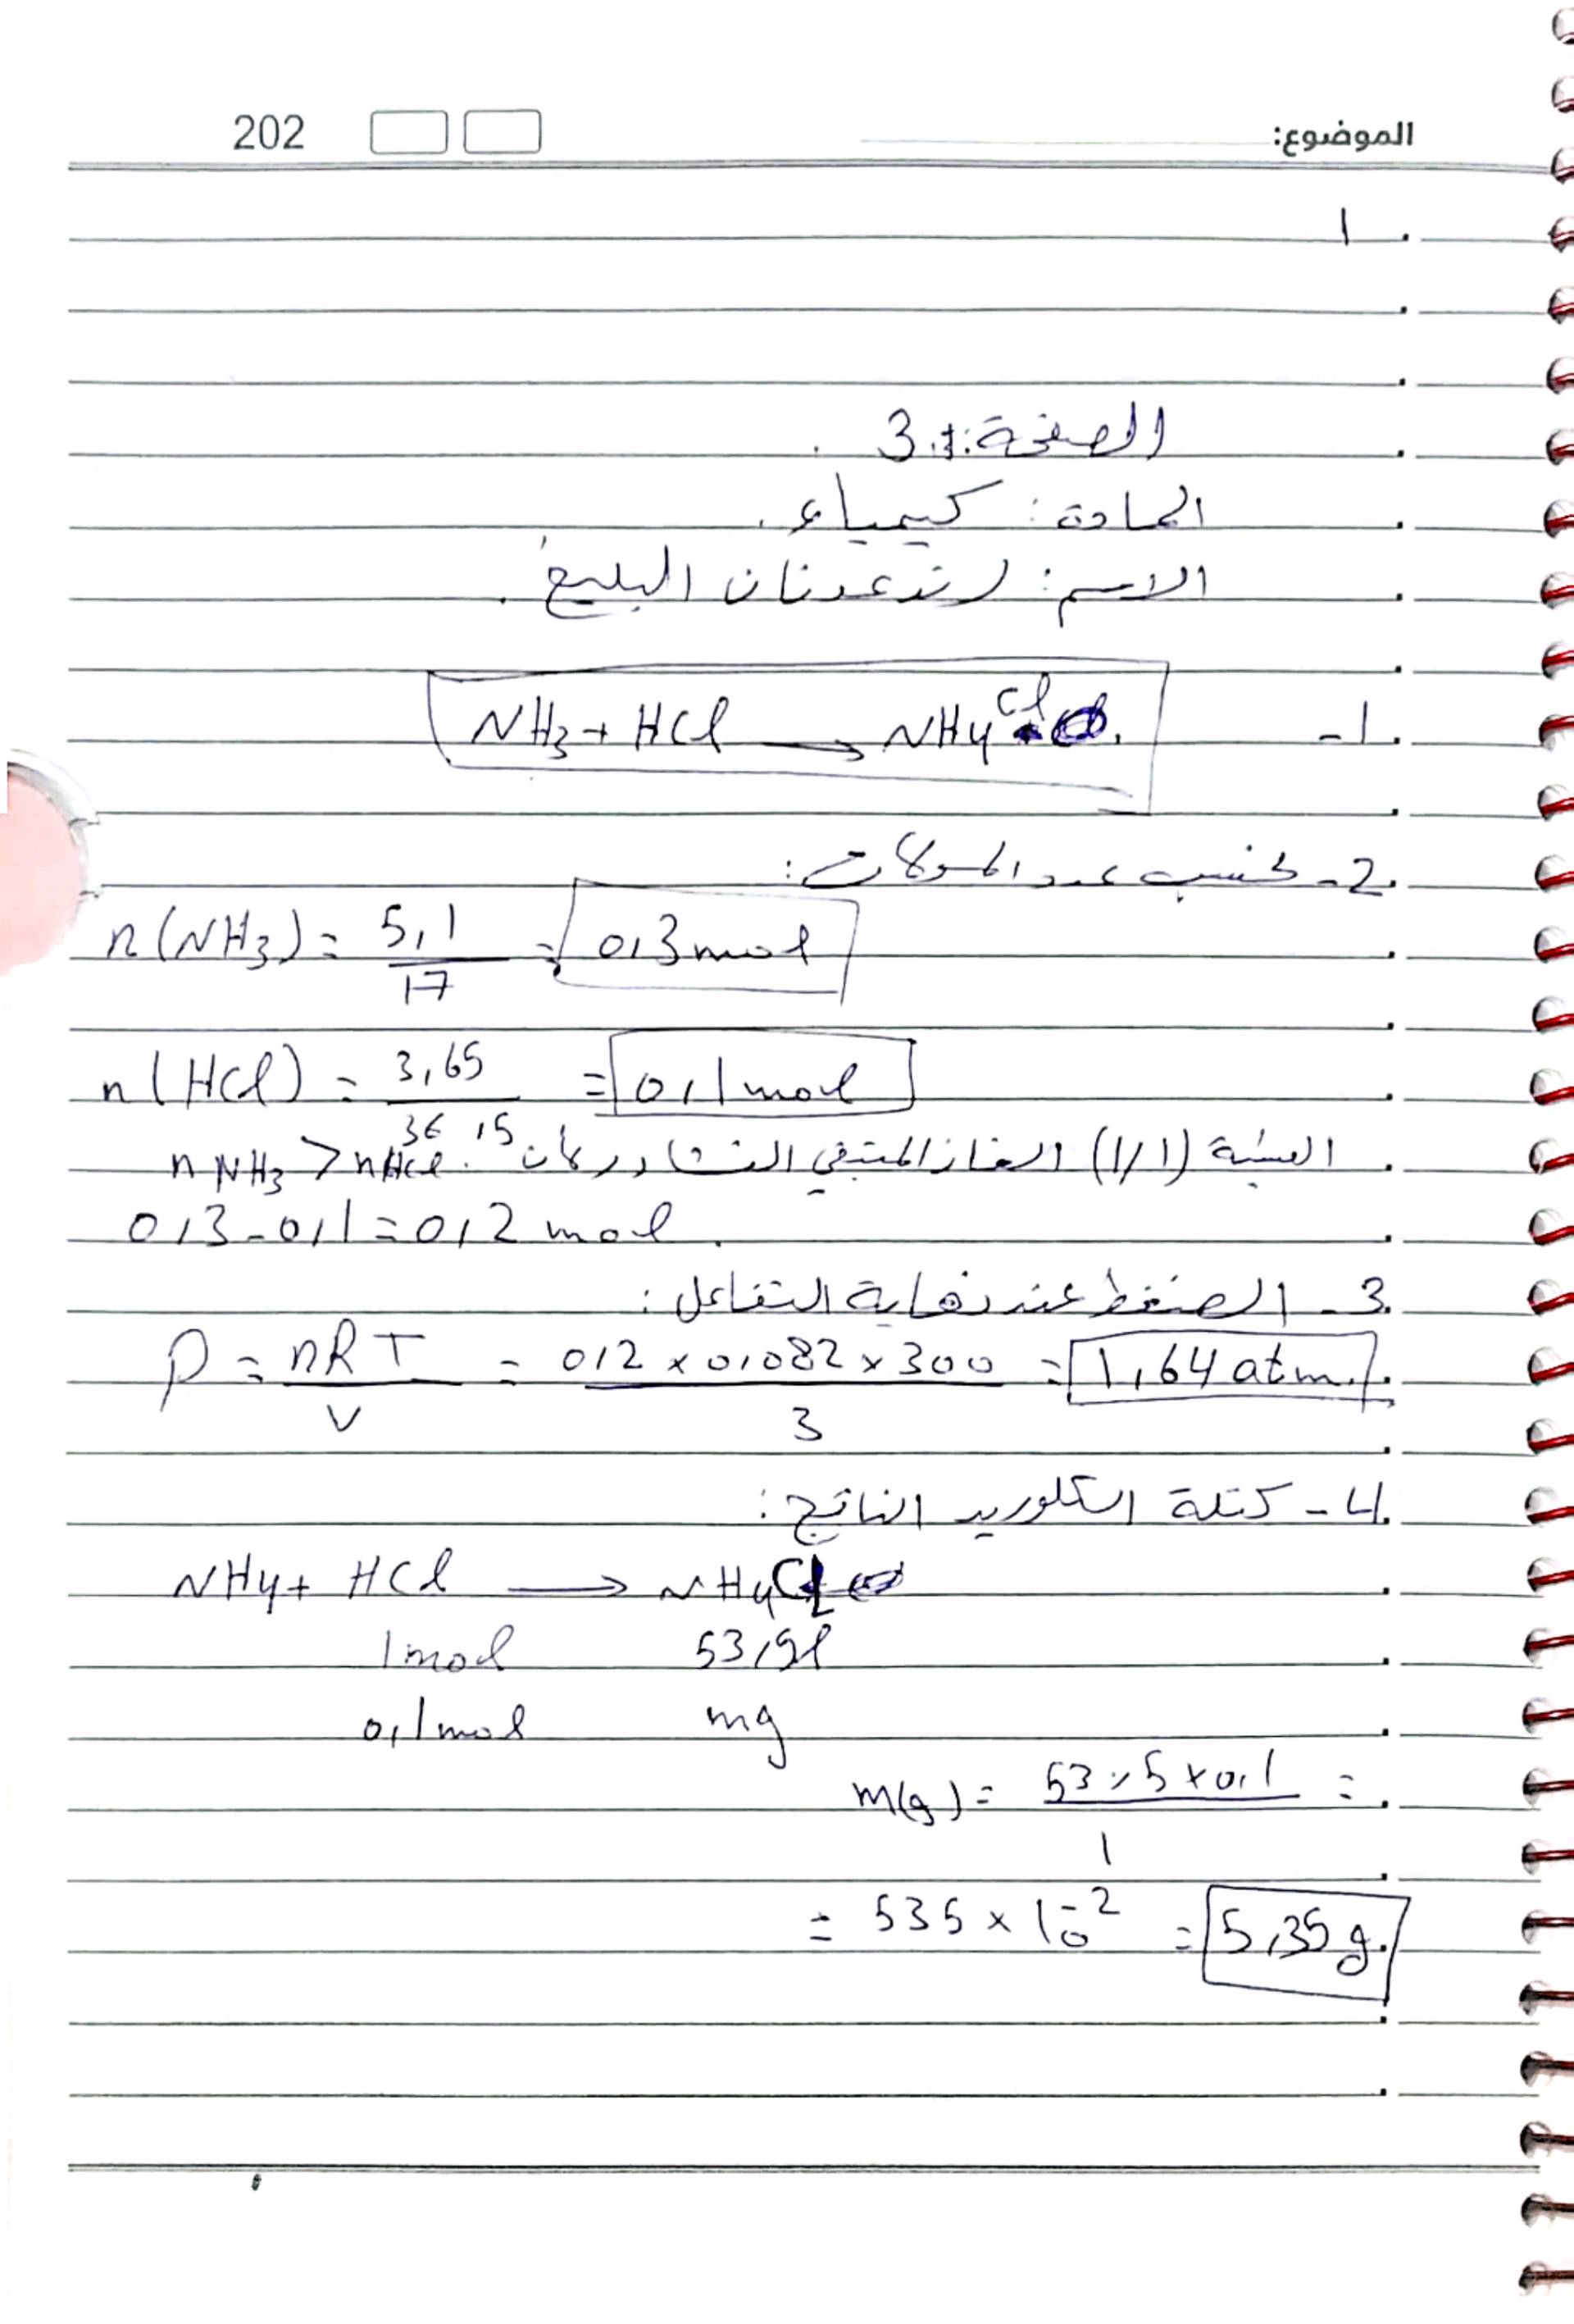 الموضوع: 202
1
الصفحة: 31
المادة: كيمياء.
الاسم: عدنان البليغ.
1- NH3 + HCl → NH4Cl
2- نحسب عدد المولات:
n(NH3) = 5,1 / 17 = 0,3 mol
n(HCl) = 3,65 / 36,5 = 0,1 mol
النسبة (1/1) الغاز المتبقي النشادر لأن nNH3 > nHCl.
0,3 - 0,1 = 0,2 mol.
3- الضغط عند نهاية التفاعل:
P = nRT / V = 0,2 × 0,082 × 300 / 3 = 1,64 atm.
4- كتلة الكلوريد الناتج:
NH4 + HCl → NH4Cl
1mol 53,5g
0,1mol mg
m(g) = 53,5 × 0,1 / 1 =
= 535 × 10-2 = 5,35 g.